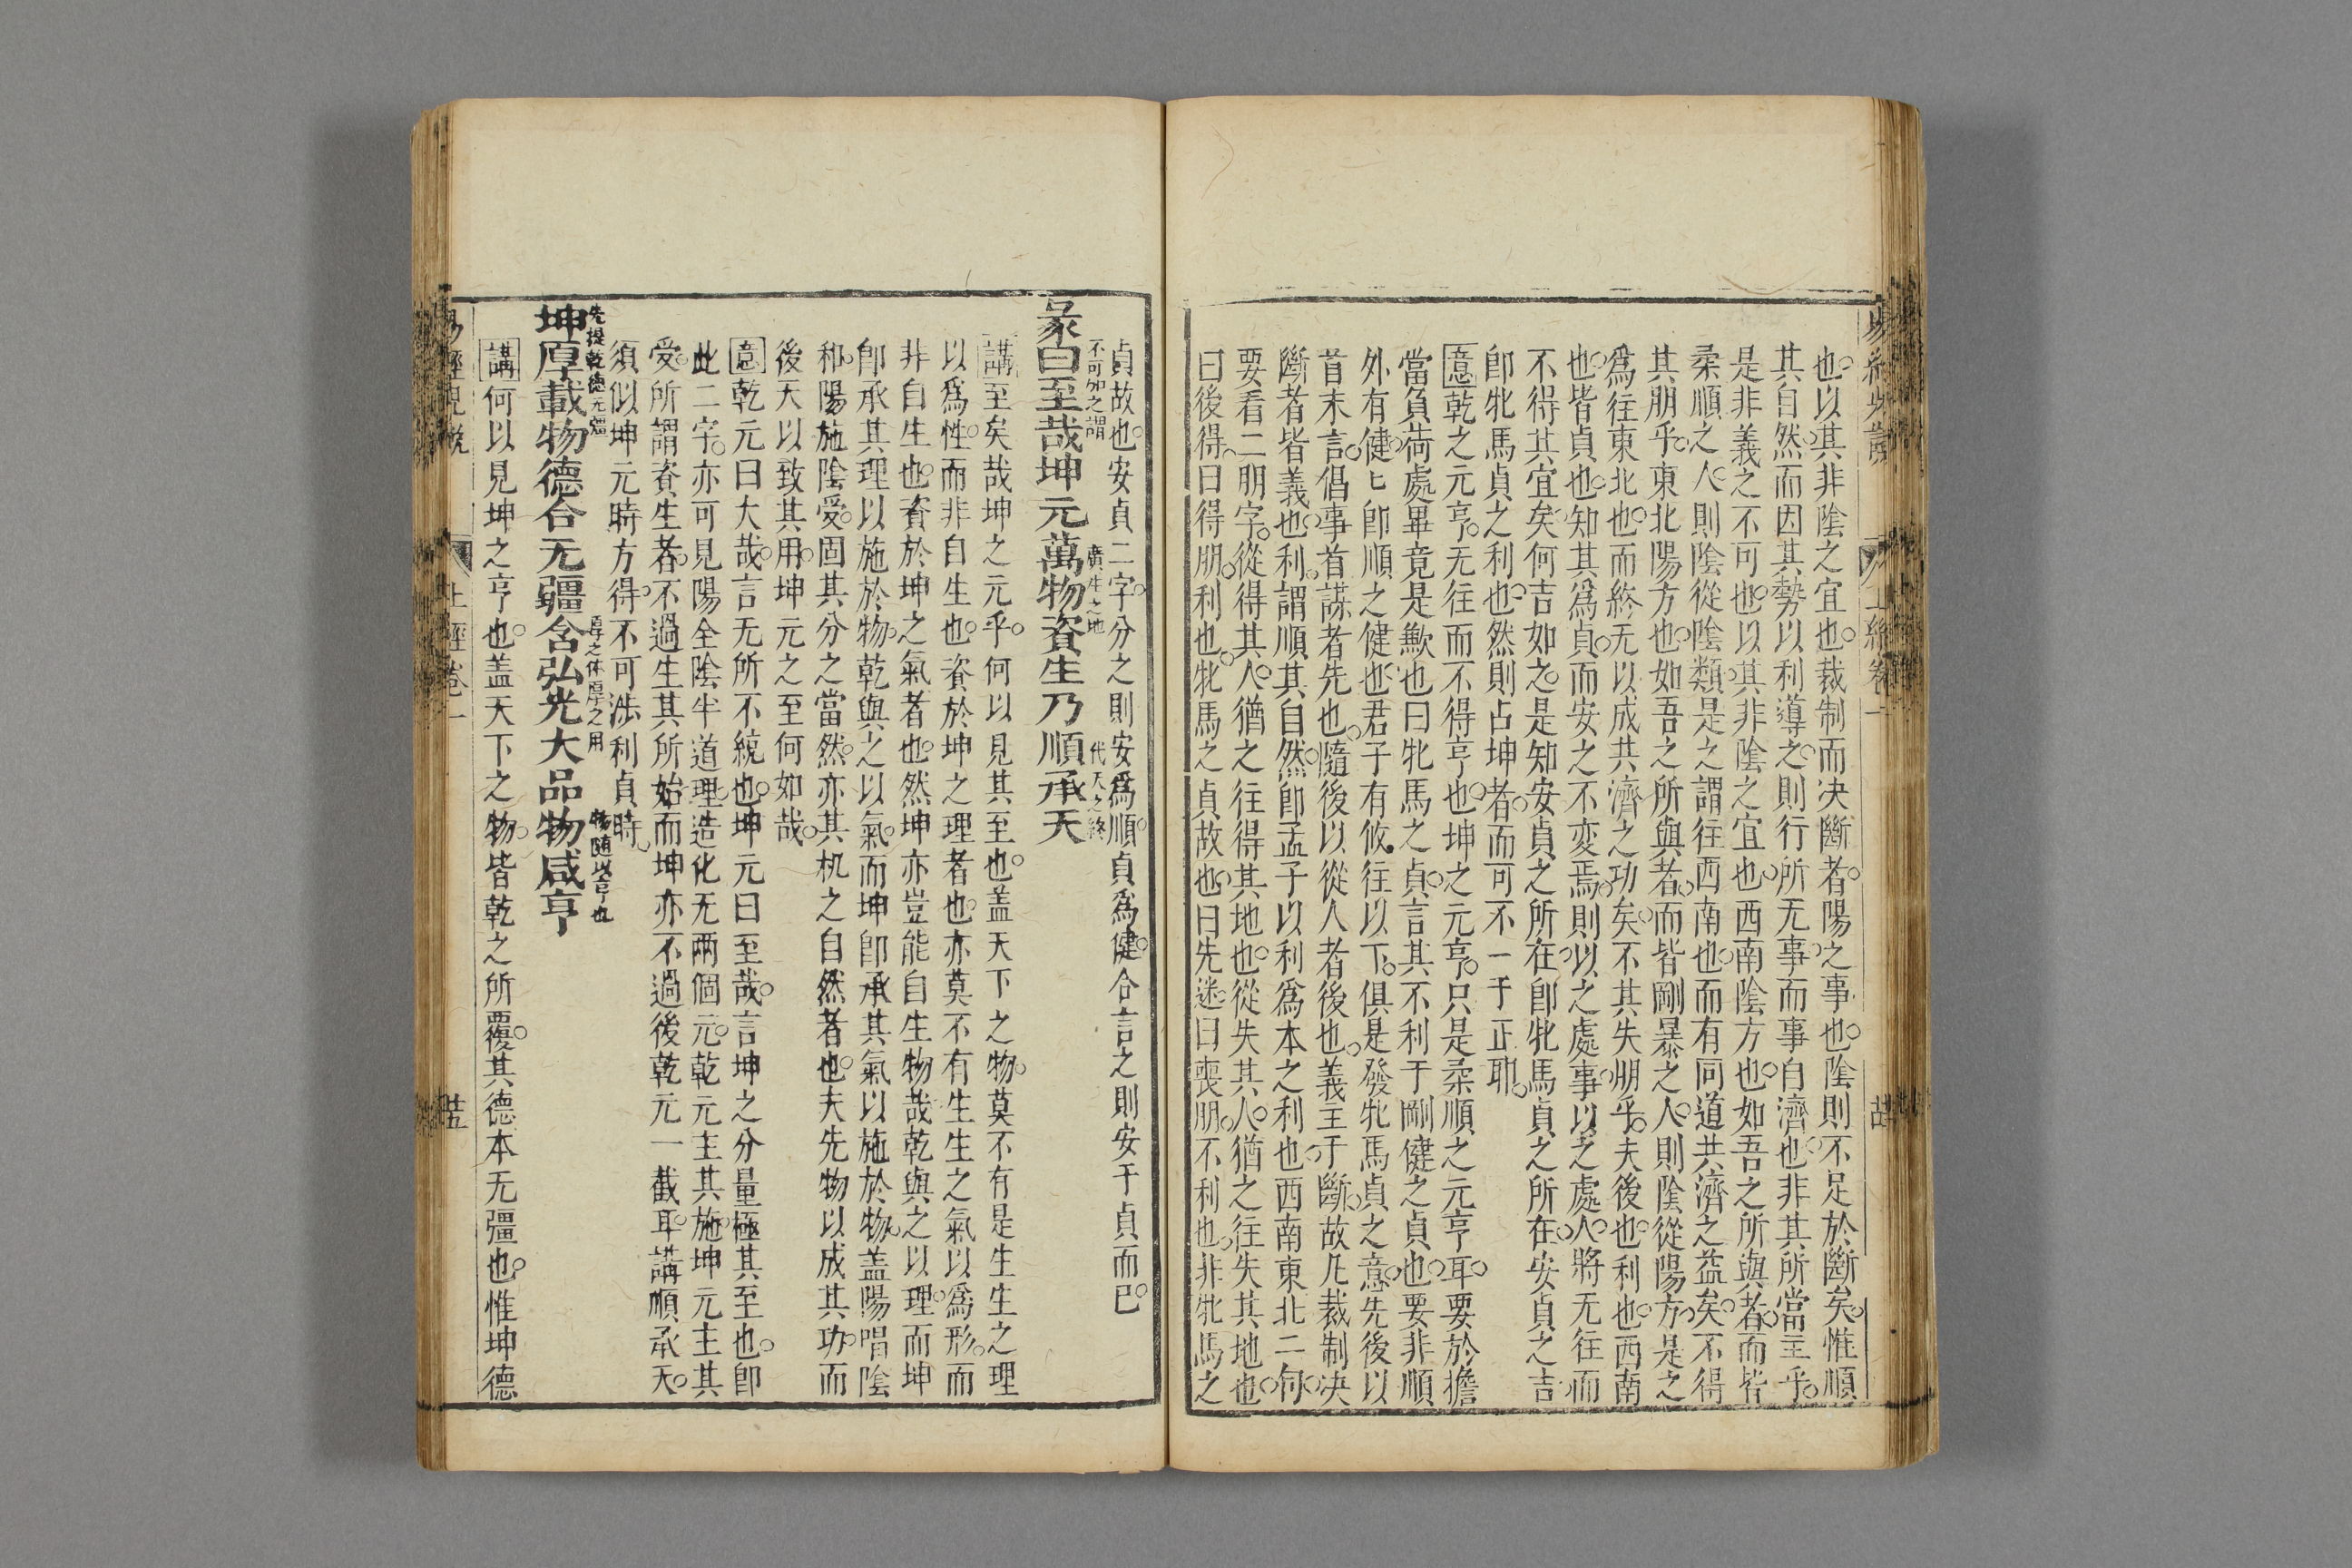 也以其非陰之宜也裁制而决斷者陽之事也陰則不足於斷矣惟順
其自然而因其勢以利導之則行所无事而事自濟也非其所當主乎
是非義之不可也以其非陰之宜也西南陰方也如吾之所與者而皆
柔順之人則陰從陰類是之謂往西南也而有同道共濟之益矣不得
其朋乎東北陽方也如吾之所與者而皆剛暴之人則陰從陽方是之
爲往東北也而終无以成共濟之功矣不其失朋乎夫後也利也西南
也皆貞也知其爲貞而安之不変焉則以之處事以之處人將无往而
不得其宜矣何吉如之是知安貞之所在卽牝馬貞之所在安貞之吉
卽牝馬貞之利也然則占坤者而可不一于正耶
意乾之元亨无往而不得亨也坤之元亨只是柔順之元亨耳要於擔
當負荷處畢竟是歉也曰牝馬之貞言其不利于剛健之貞也要非順
外有健匕卽順之健也君子有攸往以下俱是發牝馬貞之意先後以
首末言倡事首謀者先也隨後以從人者後也義主于斷故凡裁制决
斷者皆義也利謂順其自然卽孟子以利爲本之利也西南東北二句
要看二朋字從得其人猶之往得其地也從失其人猶之往失其地也
曰後得曰得朋利也牝馬之貞故也曰先迷曰喪朋不利也非牝馬之
貞故也安貞二字分之則安爲順貞爲健合言之則安于貞而已
不可加之謂 廣生之地 代天之終
彖曰至哉坤元萬物資生乃順承天
講至矣哉坤之元乎何以見其至也盖天下之物莫不有是生生之理
以爲性而非自生也資於坤之理者也亦莫不有生生之氣以爲形而
非自生也資於坤之氣者也然坤亦豈能自生物哉乾與之以理而坤
卽承其理以施於物乾與之以氣而坤卽承其氣以施於物盖陽唱陰
和陽施陰受固其分之當然亦其机之自然者也夫先物以成其功而
後天以致其用坤元之至何如哉
意乾元曰大哉言无所不統也坤元曰至哉言坤之分量極其至也卽
此二字亦可見陽全陰半道理造化无兩個元乾元主其施坤元主其
受所謂資生者不過生其所始而坤亦不過後乾元一截耳講順承天
須似坤元時方得不可涉利貞時
先提乾德无疆 厚之体厚之用 物随以亨也
坤厚載物德合无疆含弘光大品物咸亨
講何以見坤之亨也盖天下之物皆乾之所覆其德本无彊也惟坤德